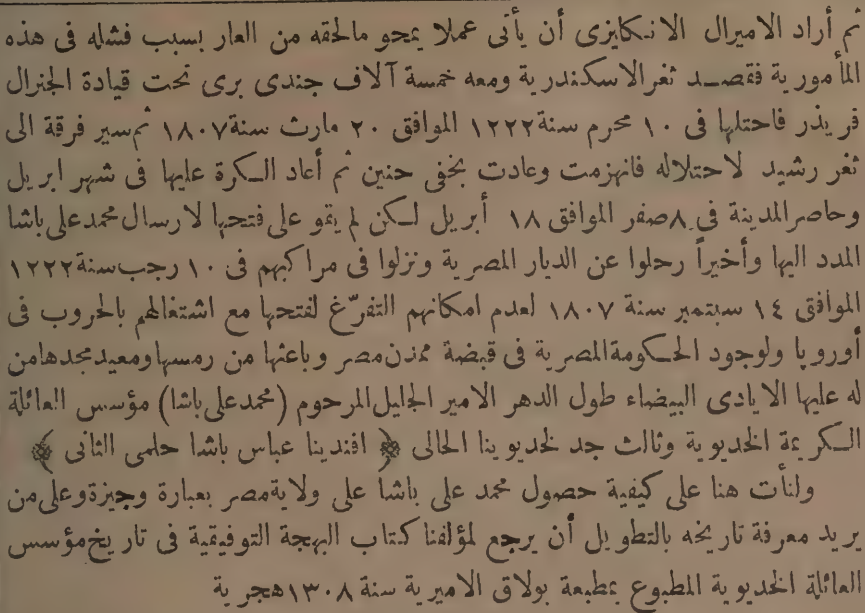 ثم أراد الاميرال الانكليزى أن يأتى عملا يمحو مالحقه من العار بسبب فشله فى هذه
المأمورية فقصد ثغر الاسكندرية ومعه خمسة آلاف جندى برى تحت قيادة الجنرال
فريذر فاحتلها فى ١٠ محرم سنة ١٢٢٢ الموافق ٢٠ مارث سنة ١٨٠٧ ثم سير فرقة الى
ثغر رشيد لاحتلاله فانهزمت وعادت بخفى حنين ثم أعاد الكرة عليها فى شهر ابريل
وحاصر المدينة فى ٨ صفر الموافق ١٨ أبريل لكن لم يقو على فتحها لارسال محمد على باشا
المدد اليها وأخيراً رحلوا عن الديار المصرية ونزلوا فى مراكبهم فى ١٠ رجب سنة ١٢٢٢
الموافق ١٤ سبتمبر سنة ١٨٠٧ لعدم امكانهم التفرّغ لفتحها مع اشتغالهم بالحروب فى
أوروپا ولوجود الحكومة المصرية فى قبضة ممدن مصر وباعثها من رمسها ومعيد مجدها من
له عليها الايادى البيضاء طول الدهر الامير الجليل المرحوم (محمد على باشا) مؤسس العائلة
الكريمة الخديوية وثالث جد لخديوينا الحالى ﴿ افندينا عباس باشا حلمى الثانى ﴾
ولنأت هنا على كيفية حصول محمد على باشا على ولاية مصر بعبارة وجيزة وعلى من
يريد معرفة تاريخه بالتطويل أن يرجع لمؤلفنا كتاب البهجة التوفيقية فى تاريخ مؤسس
العائلة الخديوية المطبوع بمطبعة بولاق الاميرية سنة ١٣٠٨ هجرية